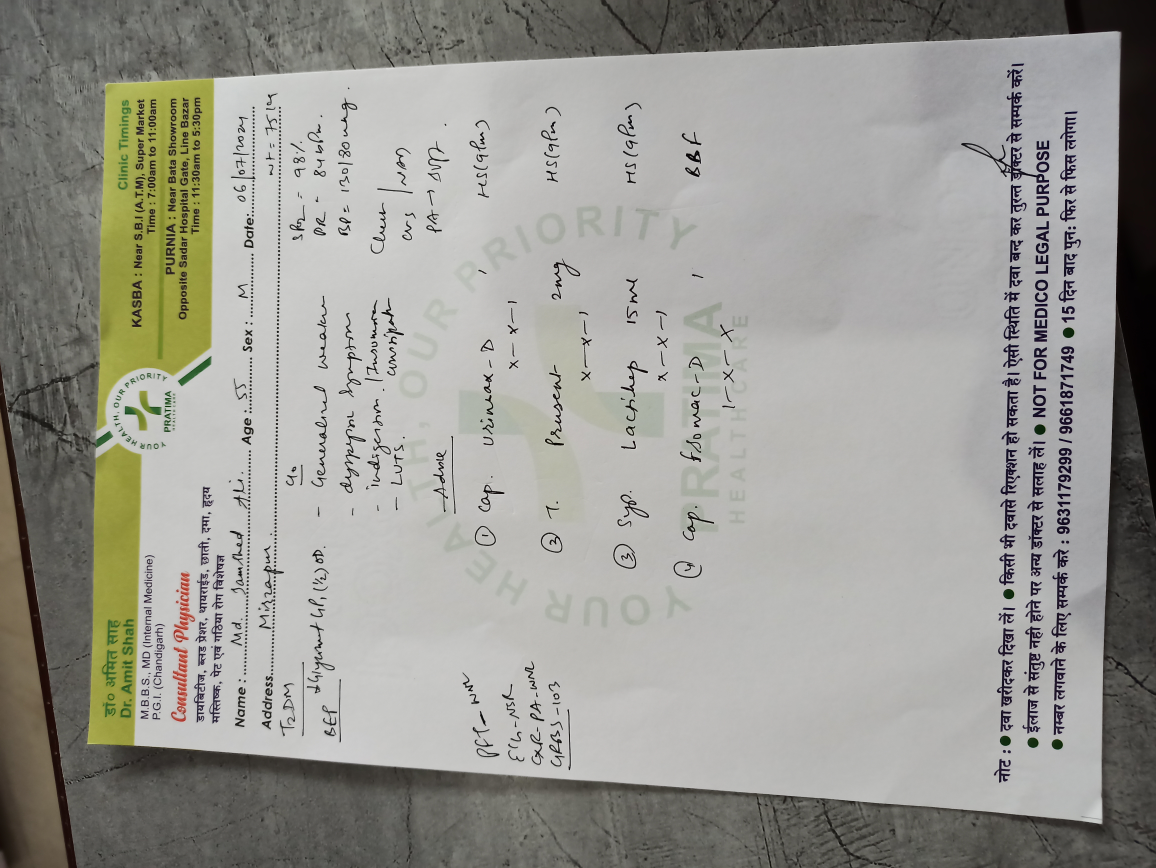 डॉ० अमित साह
Dr. Amit Shah
M.B.B.S., MD (Internal Medicine)
P.G.I. (Chandigarh)
Consultant Physician
डायबिटीज, ब्लड प्रेशर, थायराईड, छाती, दमा, हृदय
मस्तिष्क, पेट एवं गठिया रोग विशेषज्ञ
YOUR HEALTH, OUR PRIORITY
PRATIMA
HEALTHCARE
Clinic Timings
KASBA : Near S.B.I (A.T.M), Super Market
Time : 7:00am to 11:00am
PURNIA : Near Bata Showroom
Opposite Sadar Hospital Gate, Line Bazar
Time : 11:30am to 5:30pm
Name : Md. Jamshed Ali. Age : 55 Sex : M Date: 06/07/2024
Address Mirzapur. wt = 75 kg
T2DM
BEP
(1/2) OD.
c/o
- Generalised weakness
- dyspeptic symptoms
- indigestion. / Insomnia
constipation
- LUTS.
SPO2 = 98%
PR = 84 bpm.
BP = 130/80 mmhg.
Chest
CVS / NAD
PA →
Advice
① Cap. Urimax-D HS (9Pm)
x-x-1
② T. 2mg HS (9Pm)
x-x-1
③ Syp. Lactihep 15ml HS (9Pm)
x-x-1
④ Cap. -D BBF
1-x-x
PFT - WNL
ECG - NSR
CXR-PA-WNL
GRBS-103
YOUR HEALTH, OUR PRIORITY
PRATIMA
HEALTHCARE
नोट : ● दवा खरीदकर दिखा लें। ● किसी भी दवासे रिएक्शन हो सकता है। ऐसी स्थिति में दवा बन्द कर तुरन्त डॉक्टर से सम्पर्क करें।
● ईलाज से संतुष्ट नही होने पर अन्य डॉक्टर से सलाह लें। ● NOT FOR MEDICO LEGAL PURPOSE
● नम्बर लगवाने के लिए सम्पर्क करे : 9631179299 / 9661871749 ● 15 दिन बाद पुन: फिर से फिस लगेगा।